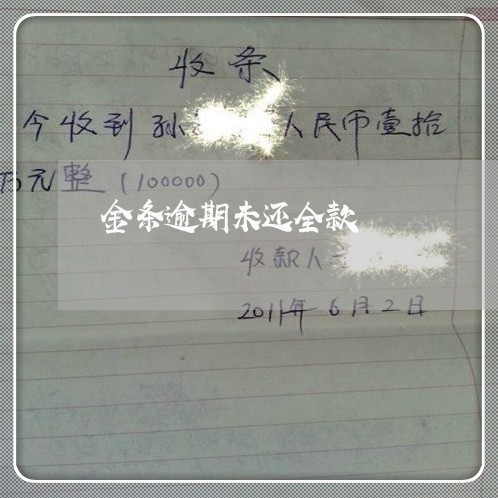 收条
今收到孙 人民币壹拾
万元整(100000)
金条逾期未还全款
收款人:
2011年6月2日